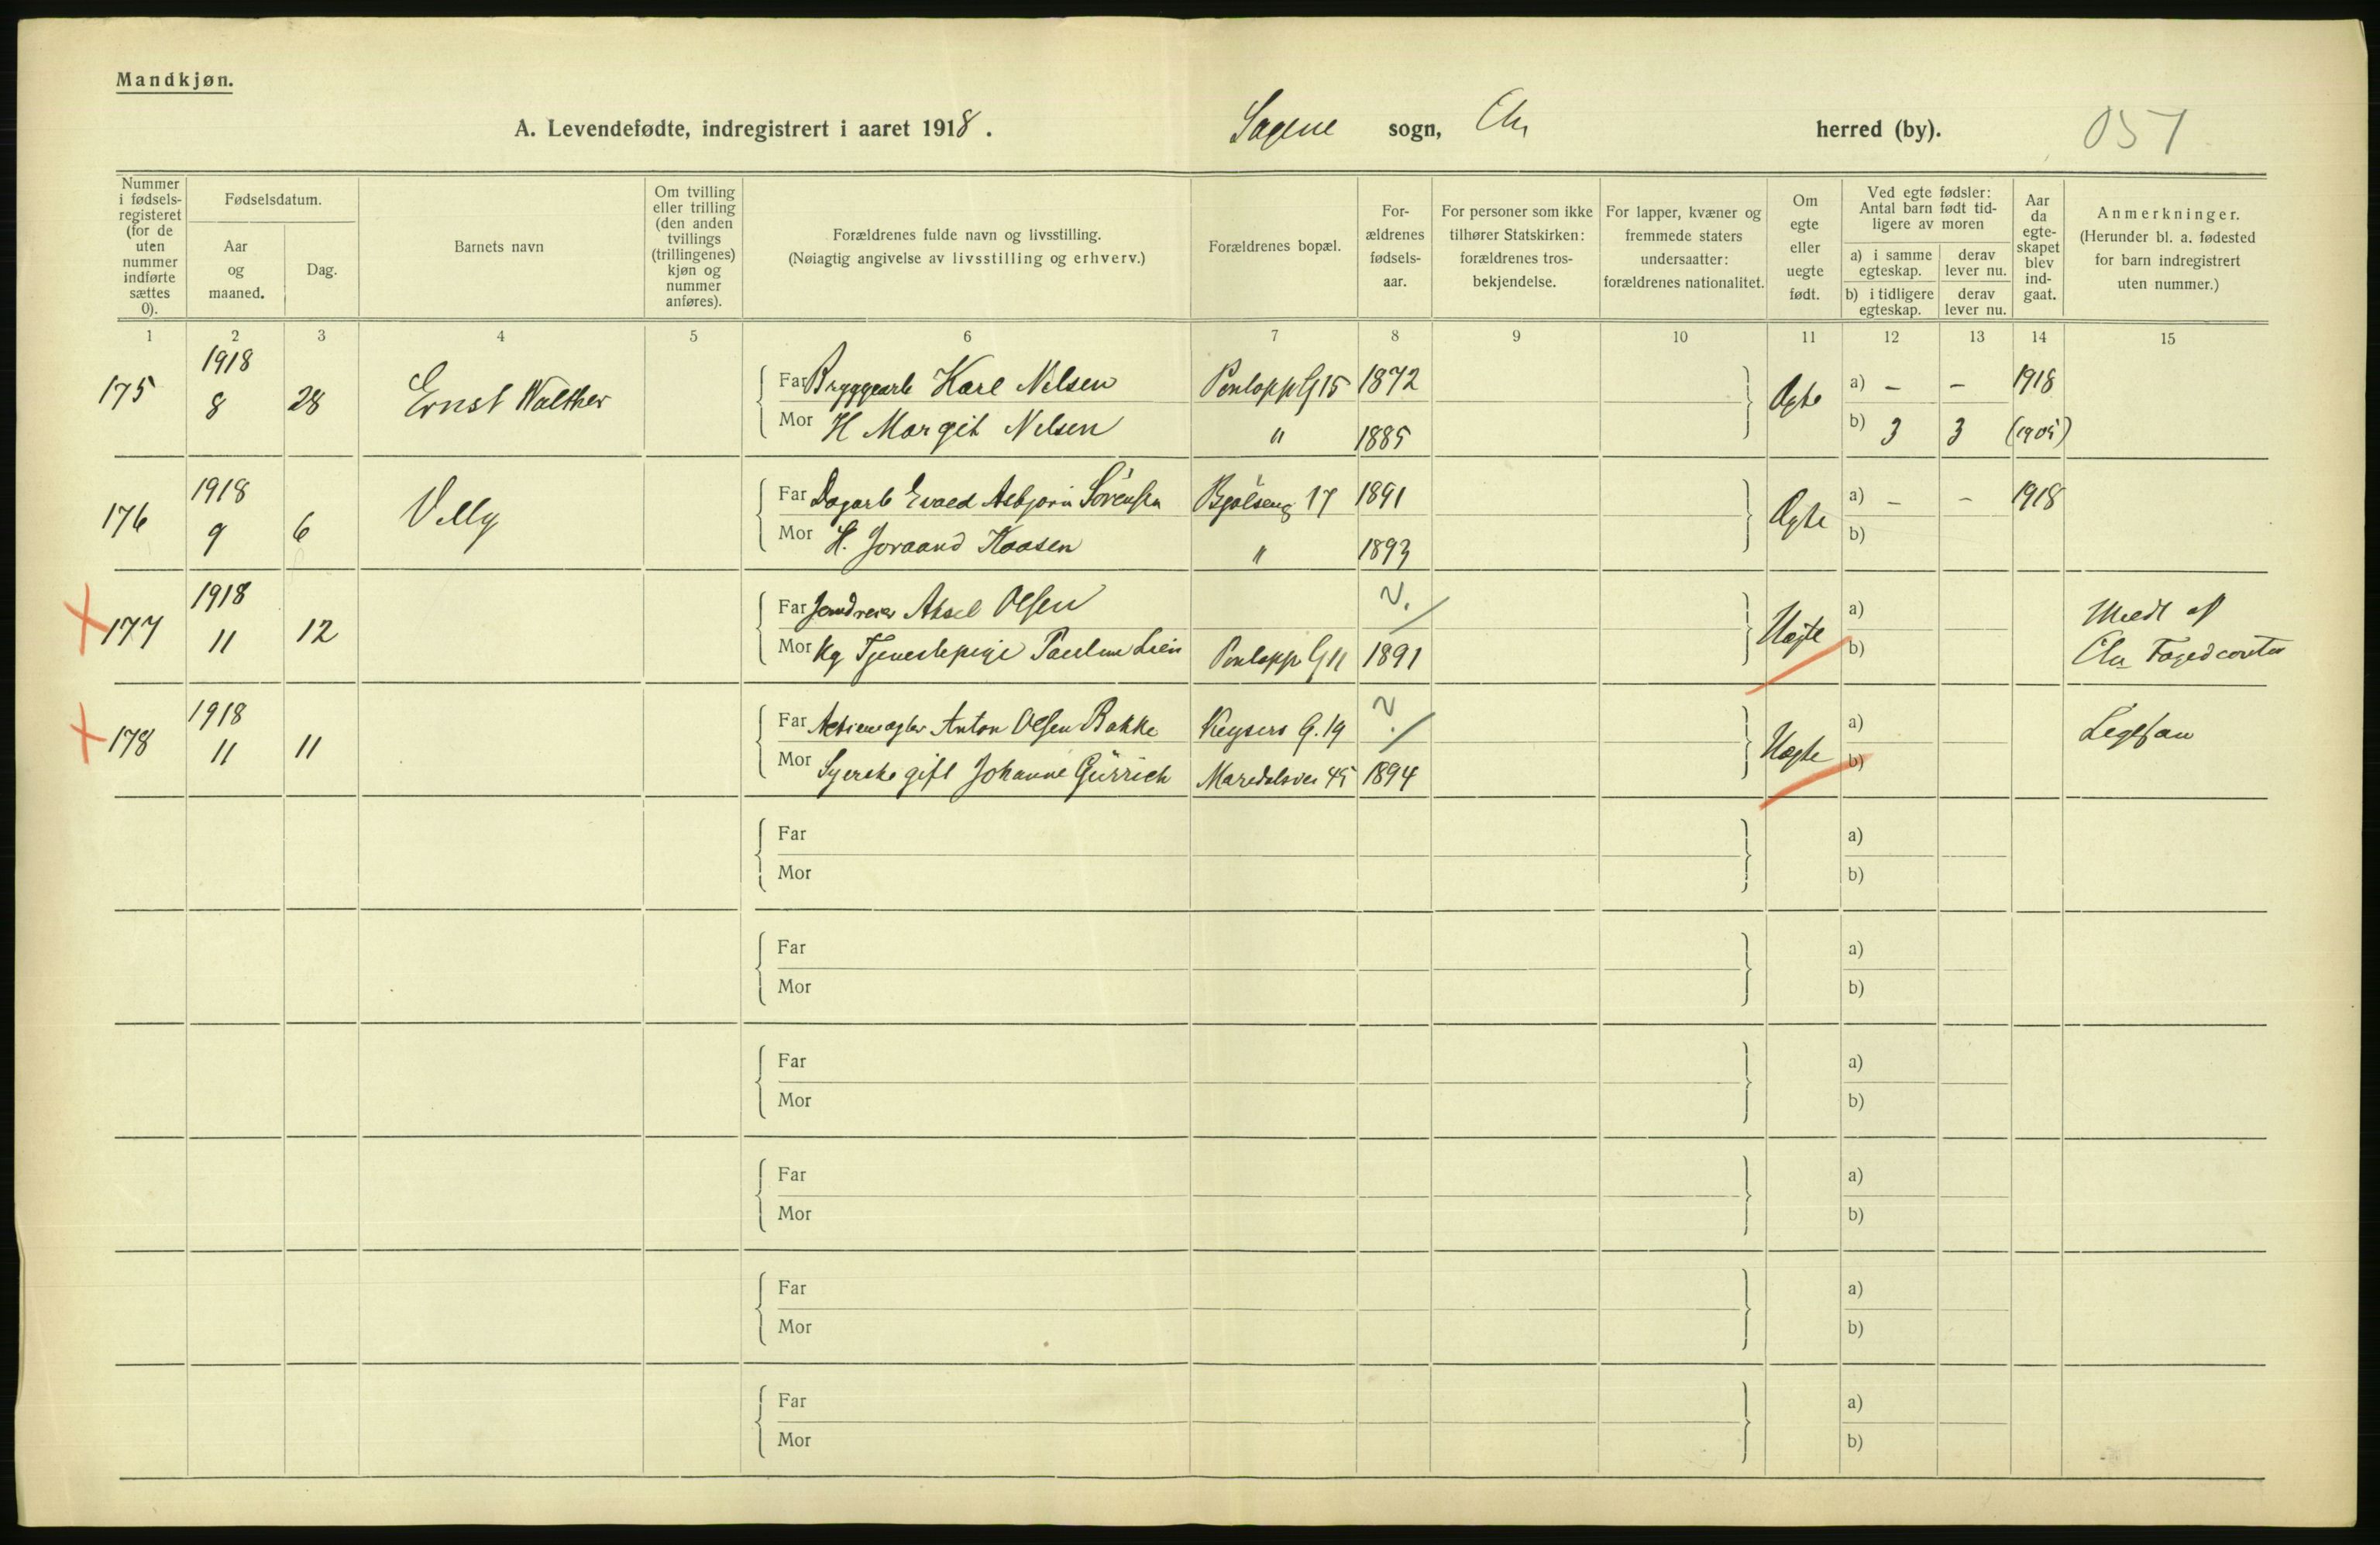 Mandkjøn.
A. Levendefødte, indregistrert i aaret 1918. Sagene sogn, Chr herred (by). 051
Nummer i fødsels-registeret (for de uten nummer indførte sættes 0).
Fødselsdatum.
Aar og maaned.
Dag.
Barnets navn
Om tvilling eller trilling (den anden tvillings (trillingenes) kjøn og nummer anføres).
Forældrenes fulde navn og livsstilling.
(Nøiagtig angivelse av livsstilling og erhverv.)
Forældrenes bopæl.
For-ældrenes fødsels-aar.
For personer som ikke tilhører Statskirken: forældrenes tros-bekjendelse.
For lapper, kvæner og fremmede staters undersaatter: forældrenes nationalitet.
Om egte eller uegte født.
Ved egte fødsler: Antal barn født tid-ligere av moren
a) i samme egteskap.
derav lever nu.
b) i tidligere egteskap.
derav lever nu.
Aar da egte-skapet blev ind-gaat.
Anmerkninger.
(Herunder bl. a. fødested for barn indregistrert uten nummer.)
1 2 3 4 5 6 7 8 9 10 11 12 13 14 15
175 1918 8 28 Ernst Walther
Far Bryggearb Karl Nilsen 1872 a) – – 1918
Mor H Margit Nilsen " 1885 Ægte b) 3 3 (1905)
176 1918 9 6 Villy
Far Dagarb Evald Asbjørn Sörensen 17 1891 a) – – 1918
Mor H. Kaasen " 1893 Ægte b)
177 1918 11 12
Far Aksel Olsen a)
Mor Ug Tjenestepige Pauline Lien 1891 Uægte b)
Chr Fogedcontor
178 1918 11 11
Far Anton Olsen Bakke Keysers G. 19 a) Legefau
Mor Syerske gift Johanne Gürrich Maridalsvei 45 1894 Uægte b)
Far a)
Mor b)
Far a)
Mor b)
Far a)
Mor b)
Far a)
Mor b)
Far a)
Mor b)
Far a)
Mor b)